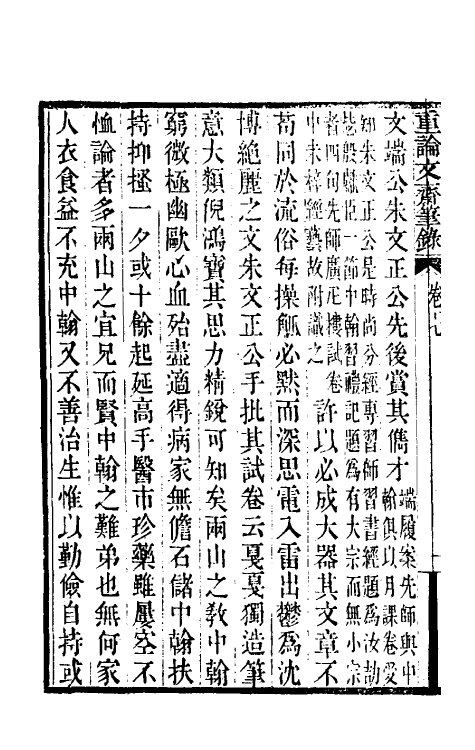 重論文齋筆錄 卷七
文端公朱文正公先後賞其儁才端履案先師與中
翰俱以月課卷受
知朱文正公是時尚分經專習師習書經題為汝劼
毖殷獻臣一節中翰習禮記題為有大宗而無小宗
者四句先師廣疋樓試卷
中未梓經藝故附識之
許以必成大器其文章不
苟同於流俗每操觚必默而深思電入雷出鬱為沈
博絕麗之文朱文正公手批其試卷云戛戛獨造筆
意大類倪鴻寶其思力精銳可知矣兩山之教中翰
窮微極幽歐心血殆盡適得病家無儋石儲中翰扶
持抑搔一夕或十餘起延高手醫市珍藥雖屢空不
恤論者多兩山之宜兄而賢中翰之難弟也無何家
人衣食益不充中翰又不善治生惟以勤儉自持或